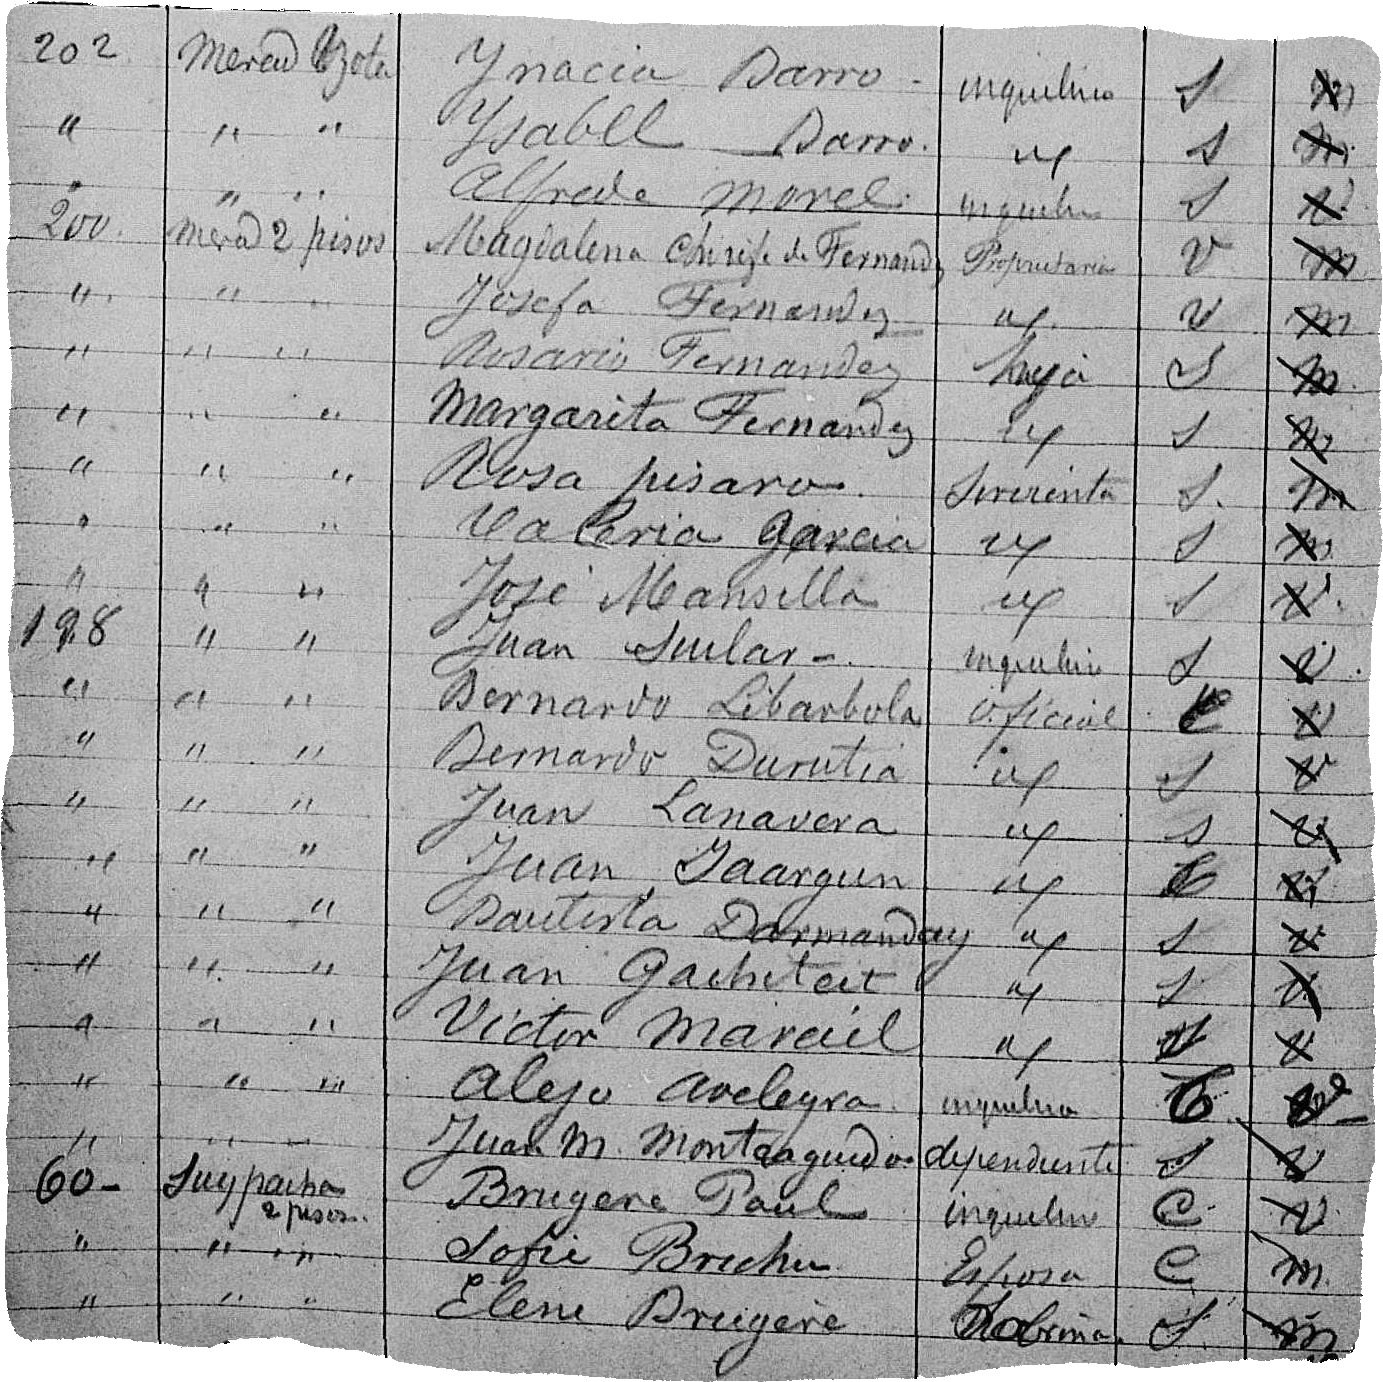 202 Ynacia Barro - inquilino S m
" " " Ysabel Barro. " S m
" " " Alfredo Morel. inquilino S V
200. Mercd 2 pisos Magdalena Chirife de Fernandez Propietaria V m
" " " Josefa Fernandez " V m
" " " Rosario Fernandez hija S m
" " " Margarita Fernandez " S m
" " " Rosa pisaro. Sirvienta S. m
" " " Valeria Garcia " S m
" " " José Mansilla " S V.
198 " " Juan Sular -. inquilino S V.
" " " Bernardo Libarbola Oficial C V
" " " Bernardo Durutia " S V
" " " Juan Lanavera " S V
" " " Juan " C V
" " " Bautista Darmanday " S V
" " " Juan " S V.
" " " Victor Marcial " V
" " " Alejo Avelegra inquilino C V
" " " Juan M. Montaagudo. dependiente S V
60- Suypacha 2 pisos. Brugere Paul inquilino C. V.
" " " Sofie Esposa C m.
" " " Elene Brugere Sobrina. S. m